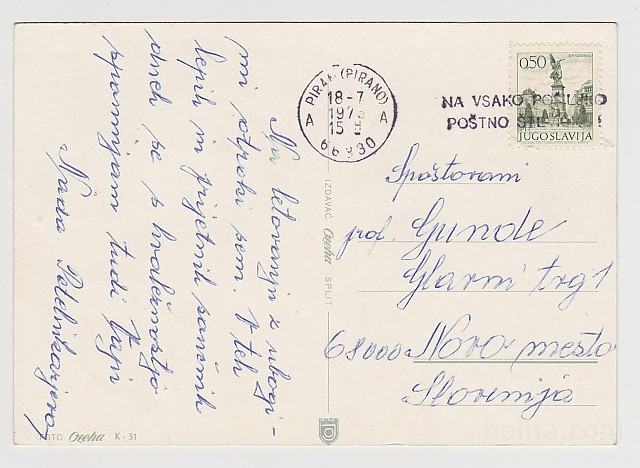 Na letovanju z ubogi-
mi otroki sem. V teh
lepih in prijetnih sončnih
dneh se s hvaležnostjo
spominjam tudi Vas!
Nada
PIRAN (PIRANO)
18-7
1973
15
A A
66330
NA VSAKO POŠILJKO
POŠTNO ŠTEVILKO!
0,50
JUGOSLAVIJA
Spoštovani
prof. Gunde
Glavni trg 1
68000 Novo mesto
Slovenija
IZDAVAČ Ozeha SPLIT
FOTO Ozeha K-31
bolha.com